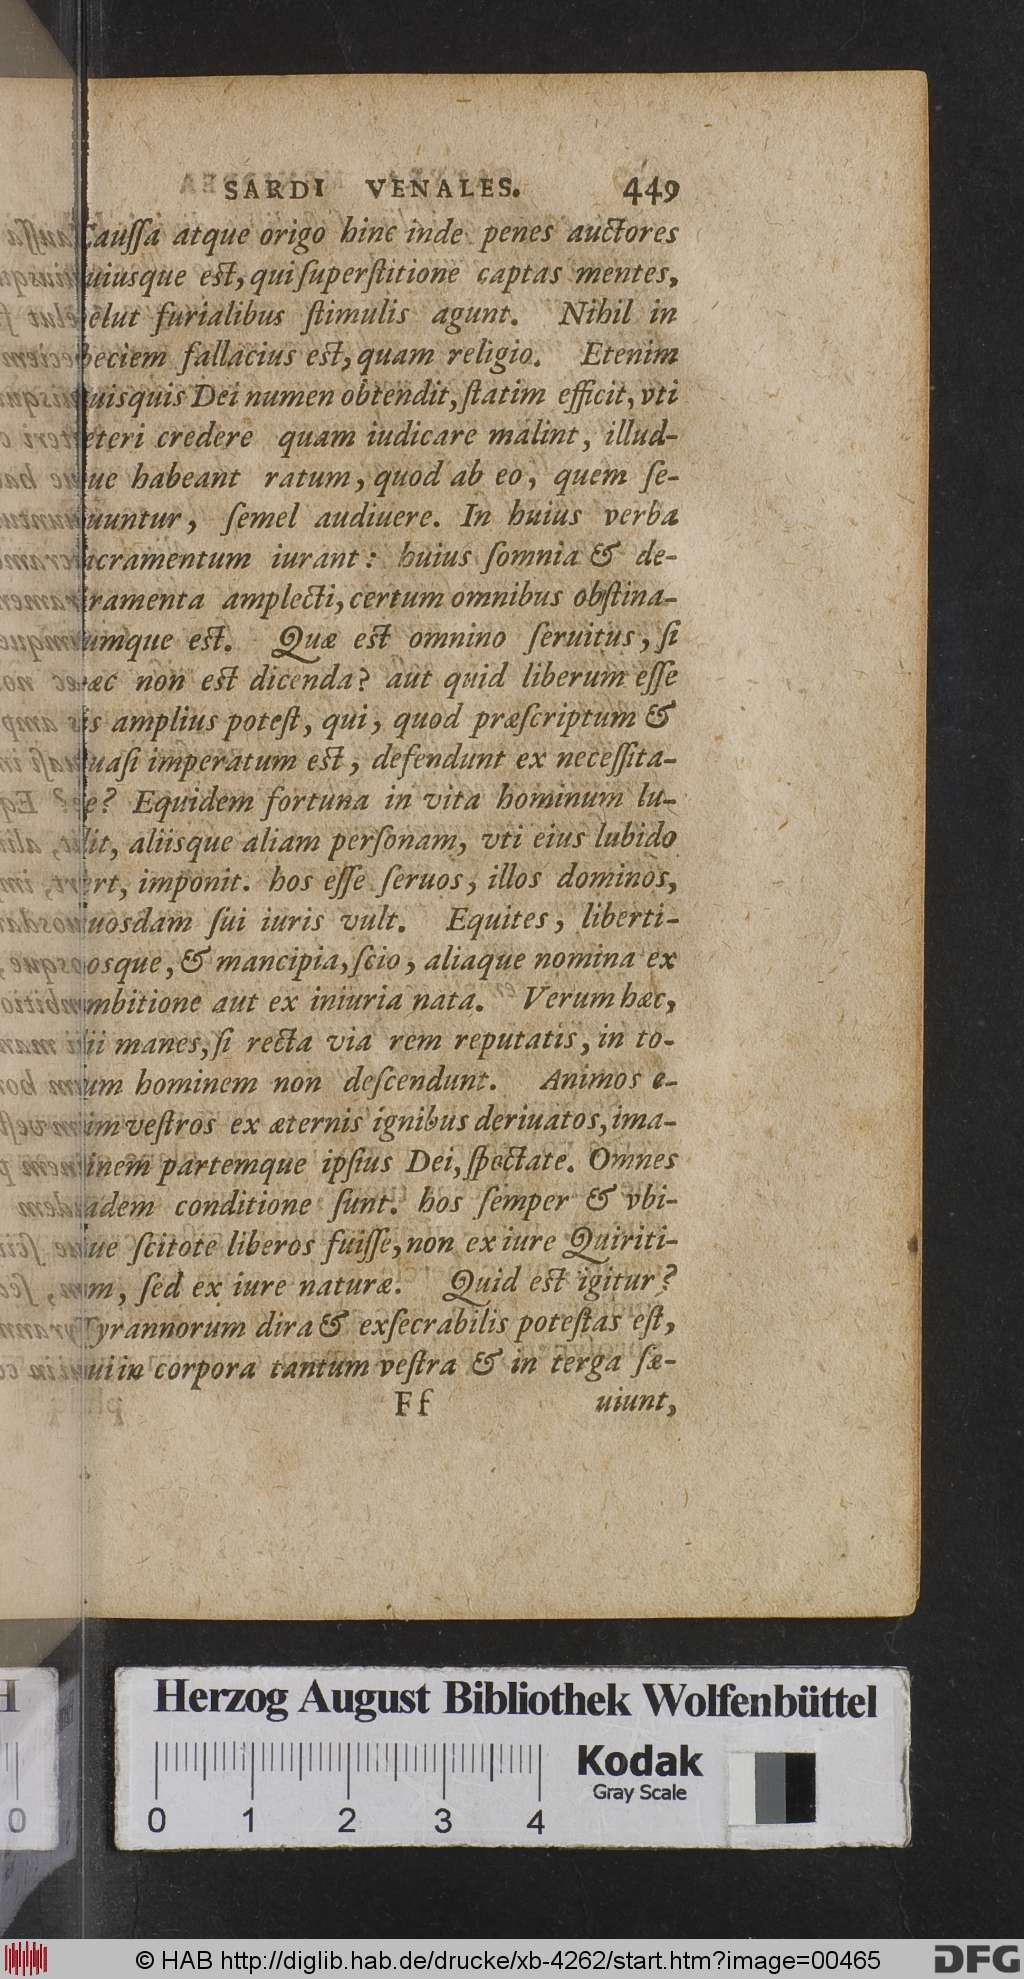 SARDI VENALES. 449
Caussa atque origo hinc inde penes auctores
uiusque est, qui superstitione captas mentes,
elut furialibus stimulis agunt. Nihil in
peciem fallacius est, quam religio. Etenim
uisquis Dei numen obtendit, statim efficit, vti
eteri credere quam iudicare malint, illud-
ue habeant ratum, quod ab eo, quem se-
uuntur, semel audiuere. In huius verba
acramentum iurant: huius somnia & de-
iramenta amplecti, certum omnibus obstina-
umque est. Quæ est omnino seruitus, si
æc non est dicenda? aut quid liberum esse
is amplius potest, qui, quod præscriptum &
uasi imperatum est, defendunt ex necessita-
e? Equidem fortuna in vita hominum lu-
it, aliisque aliam personam, vti eius lubido
ert, imponit. hos esse seruos, illos dominos,
uosdam sui iuris vult. Equites, liberti-
osque, & mancipia, scio, aliaque nomina ex
mbitione aut ex iniuria nata. Verum hæc,
ii manes, si recta via rem reputatis, in to-
um hominem non descendunt. Animos e-
im vestros ex æternis ignibus deriuatos, ima-
inem partemque ipsius Dei, spectate. Omnes
adem conditione sunt. hos semper & vbi-
ue scitote liberos fuisse, non ex iure Quiriti-
m, sed ex iure naturæ. Quid est igitur?
Tyrannorum dira & exsecrabilis potestas est,
ui in corpora tantum vestra & in terga sæ-
Ff uiunt,
Herzog August Bibliothek Wolfenbüttel
Kodak
Gray Scale
0 1 2 3 4
© HAB http://diglib.hab.de/drucke/xb-4262/start.htm?image=00465
DFG